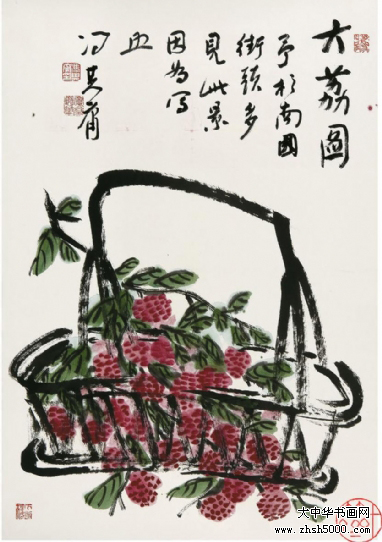 大荔圖
予於南國
街頭多
見此景
因為寫
冯其庸
大中华书画网
www.zhsh5000.com